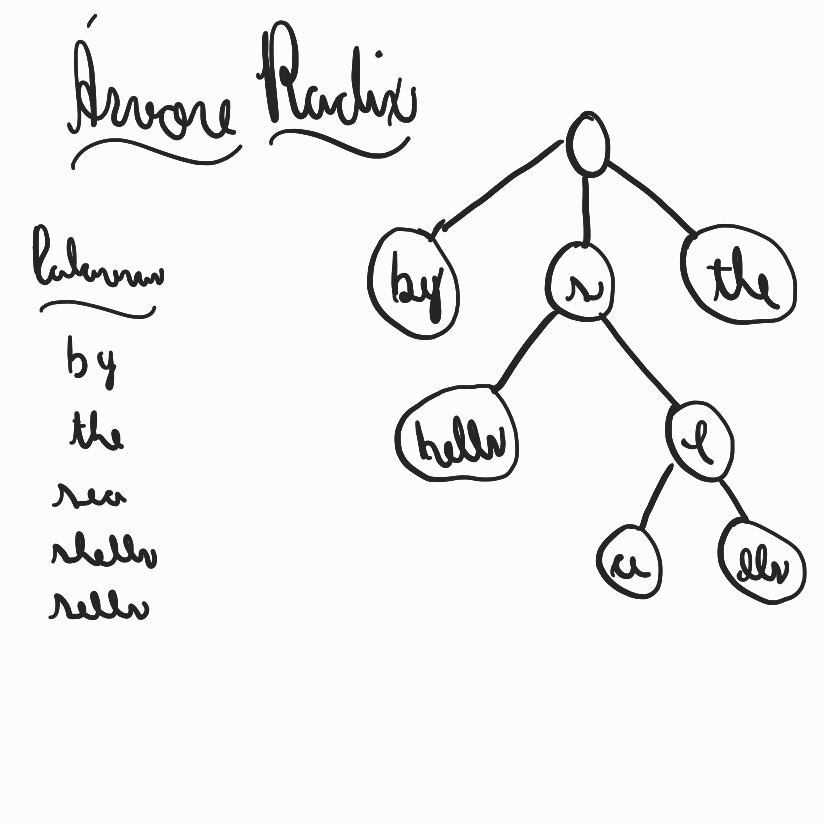 Árvore Radix
Palavras
by
the
sea
shells
sells
by
s
the
hells
e
a
lls